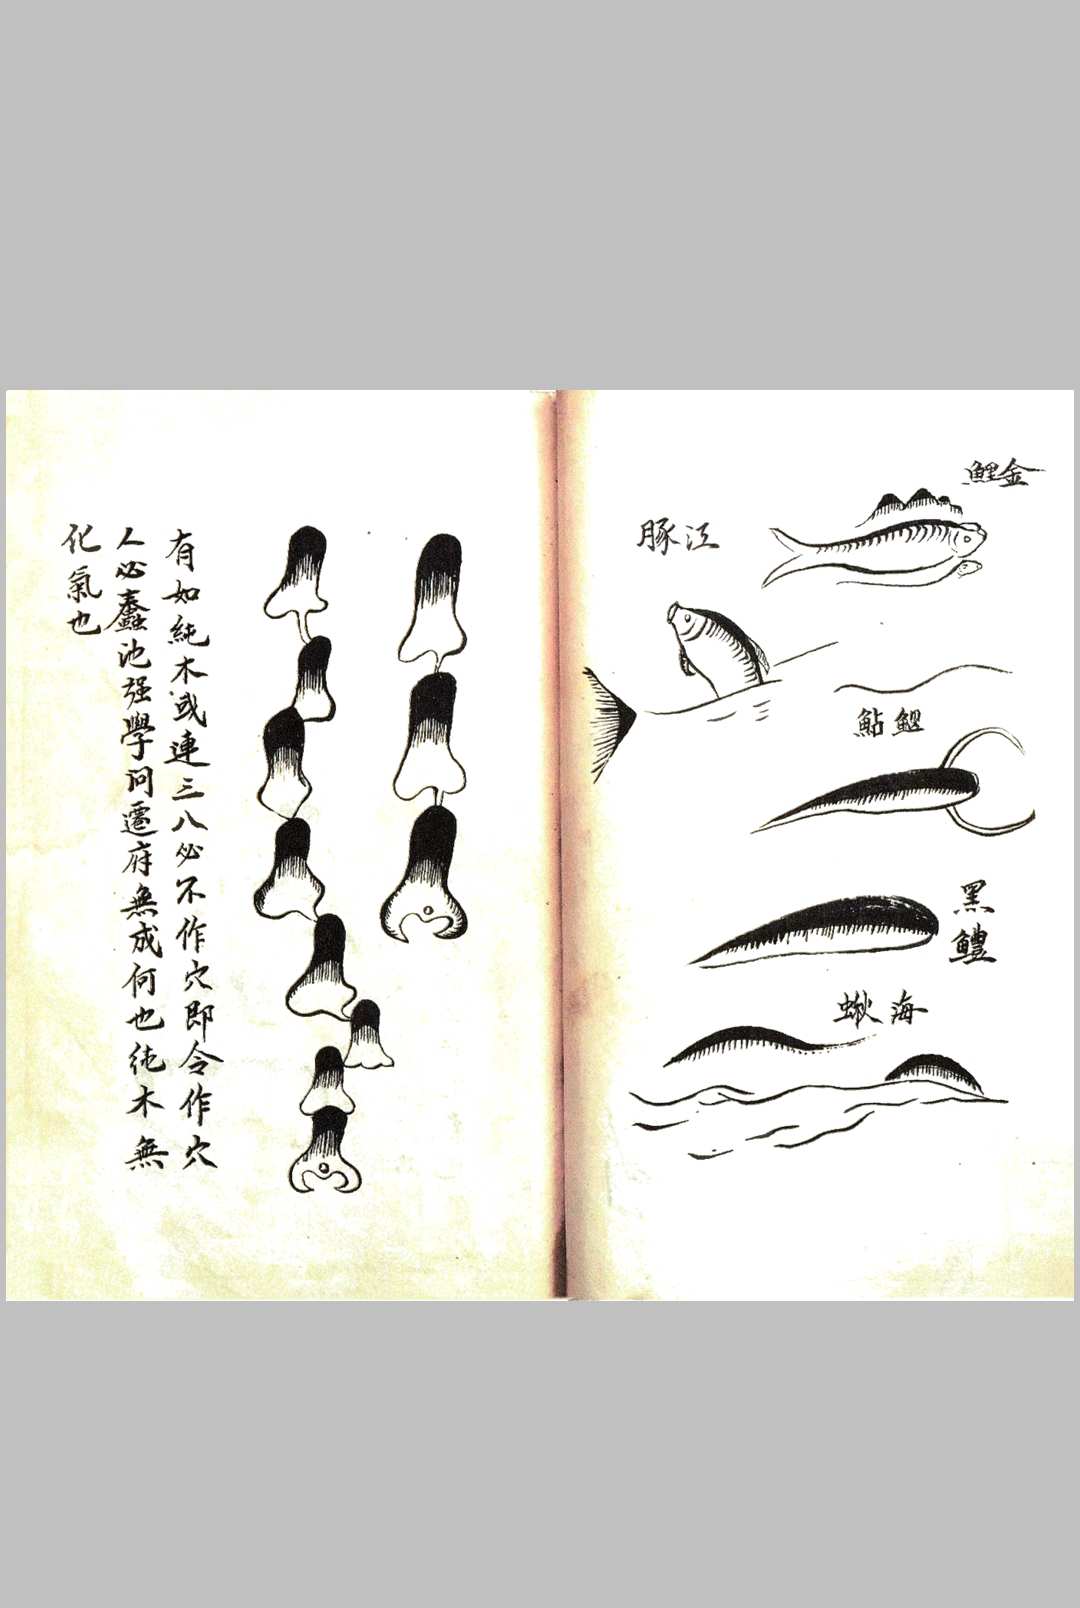 金鯉
江豚
鰮鮎
黑鱧
海鰍
有如純木或連三八必不作穴即令作穴
人必蠢池强學问遷府無成何也純木無
化氣也